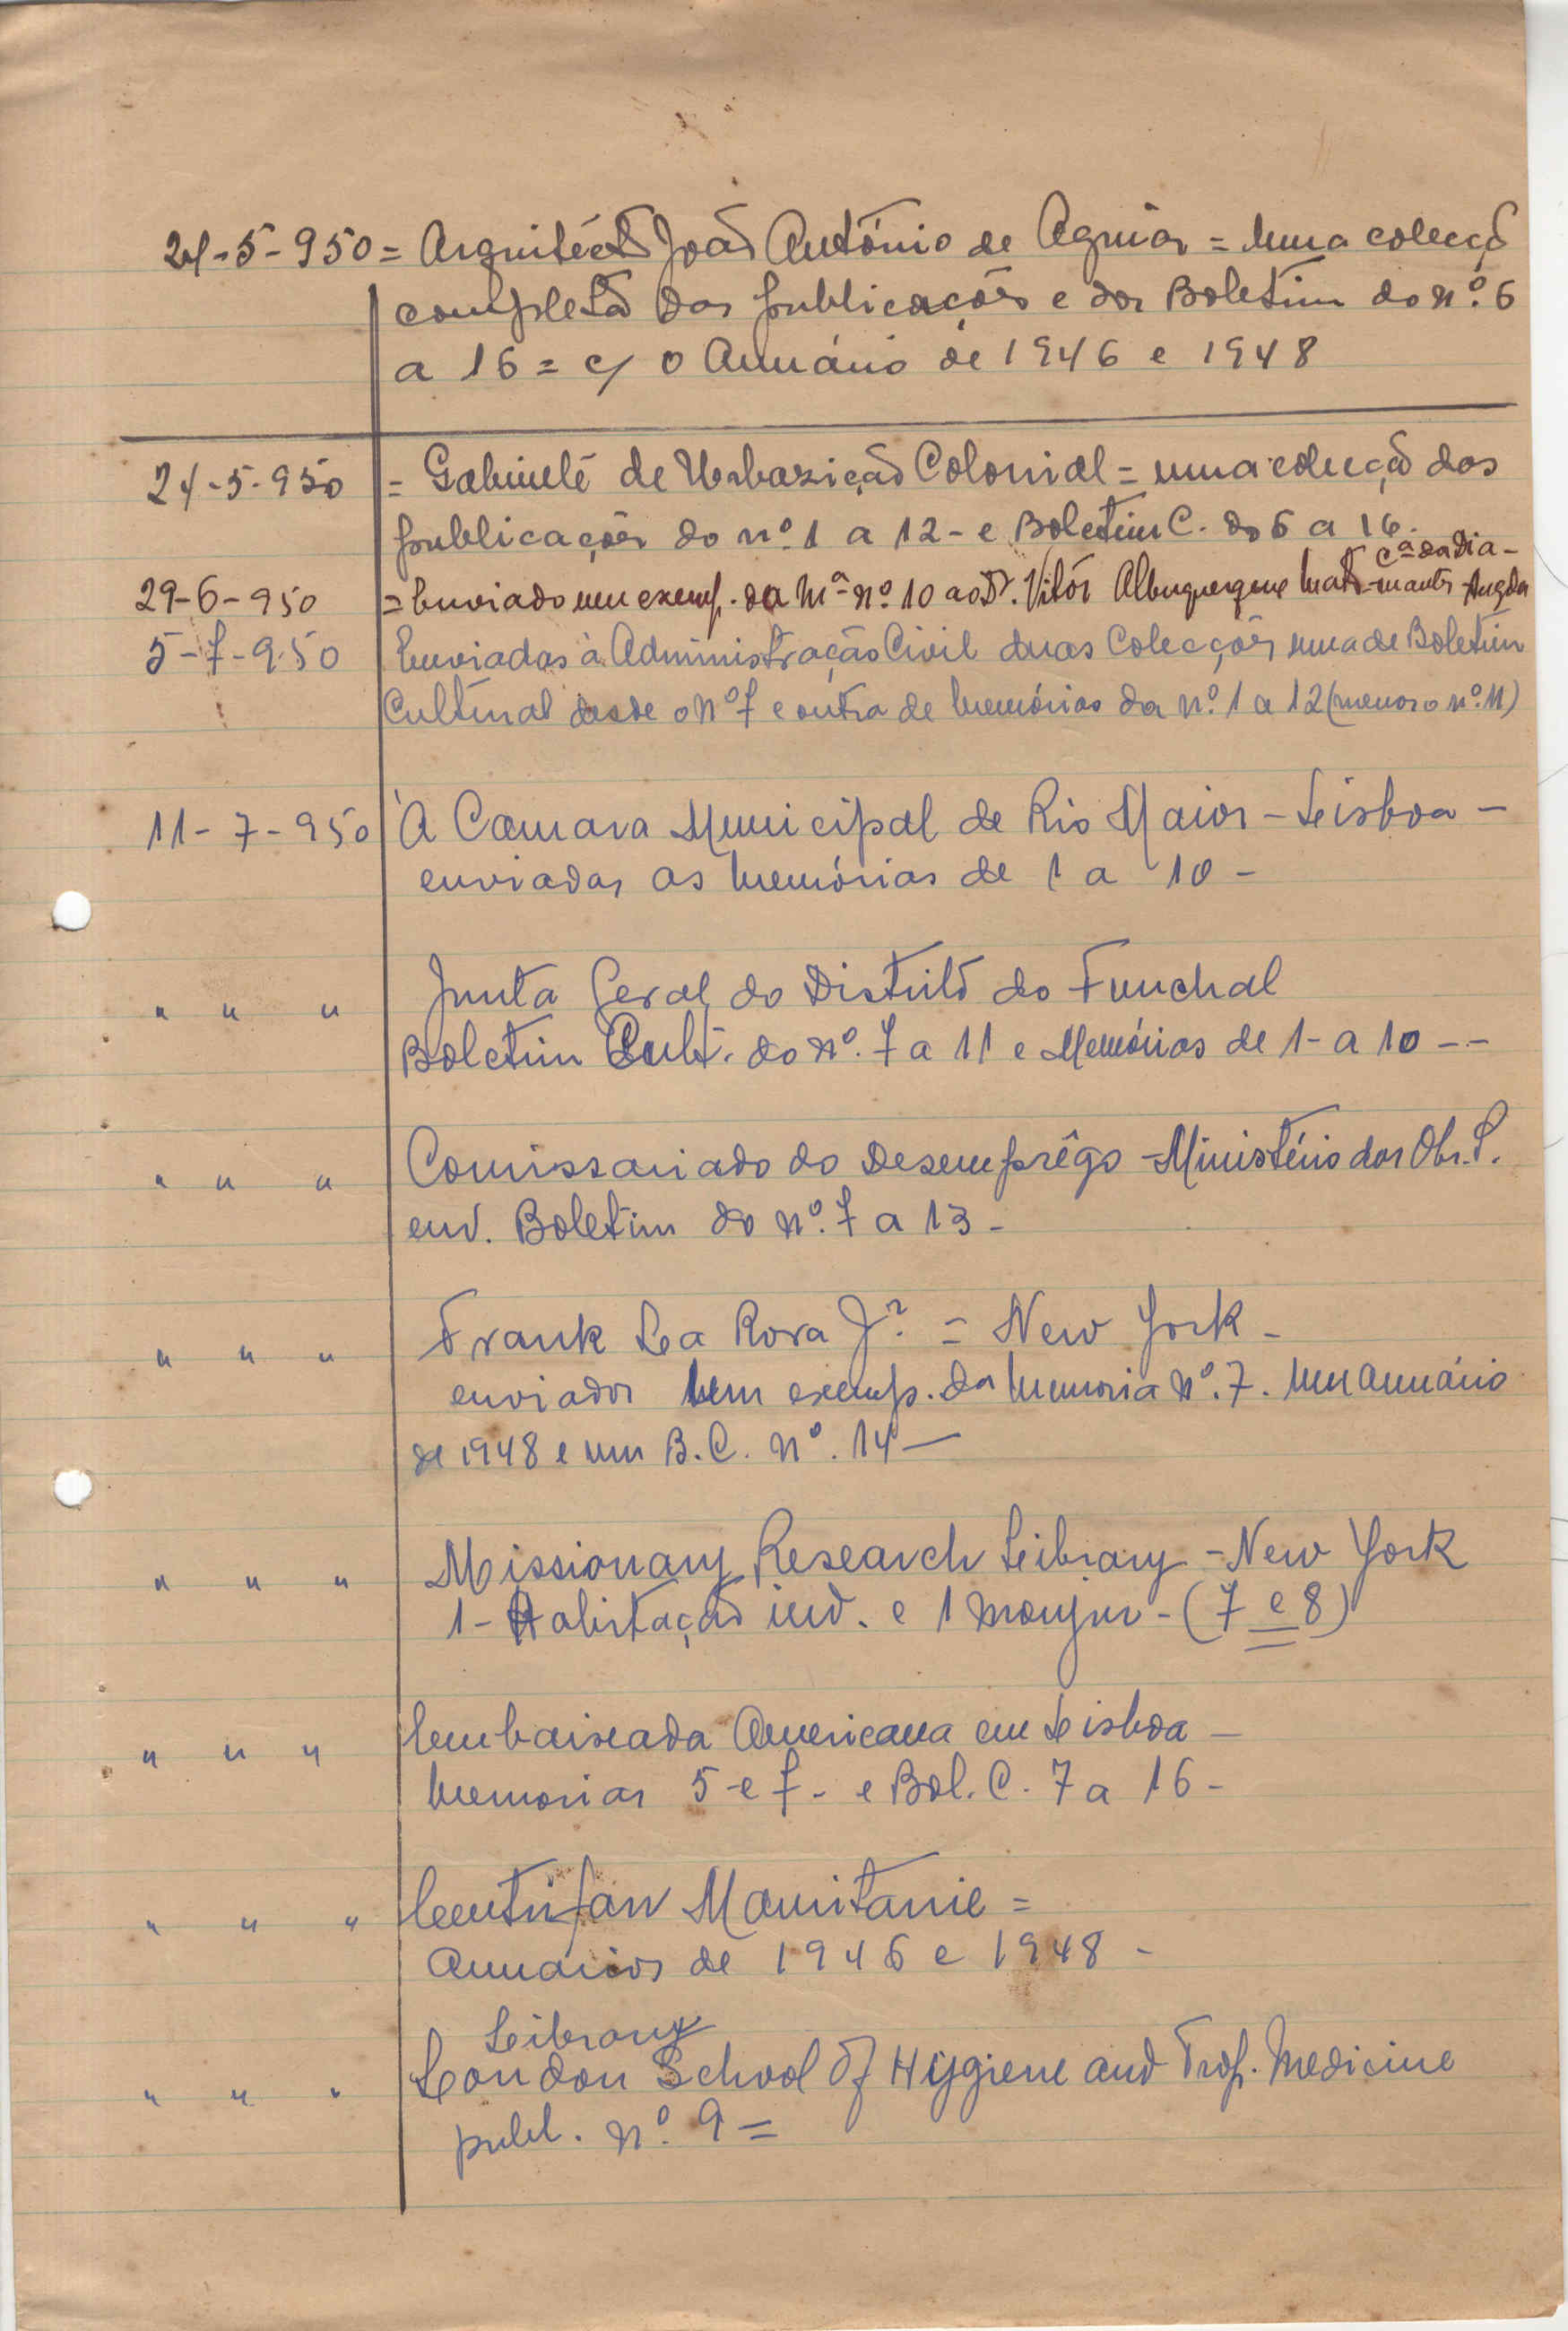 24-5-950 = Arquitécto João António de Aguiar = Uma colecção
completa das publicações e dos Boletim do nº. 6
a 16 = c/ o Anuário de 1946 e 1948
24-5-950 = Gabinete de Urbazição Colonial = uma colecção das
publicações do nº. 1 a 12 - e Boletim C. do 6 a 16.
Cª da Dia-
29-6-950 = Enviado um exemp. da Mª nº. 10 ao Dr. Vitór Albuquerque Matos - mants - Angola
5-7-950 Enviadas à Administração Civil duas Colecções uma de Boletim
Cultural desde o Nº 7 e outra de Memórias da nº. 1 a 12 (menos o nº. 11)
11-7-950 À Camara Municipal de Rio Maior - Lisboa -
enviadas as Memórias de 1 a 10 -
" " " Junta Geral do Distrito do Funchal
Boletim Cult. do nº. 7 a 11 e Memórias de 1 - a 10 --
" " " Comissariado do Desemprêgo - Ministério das Ob. P.
env. Boletim do nº. 7 a 13 -
" " " Frank La Rosa Jr. = New York -
enviados um exemp. da Memoria nº. 7. Um Anuário
de 1948 e um B. C. nº. 14 —
" " " Missionary Research Library - New York
1 - Habitação ind. e 1 Monjur - (7 e 8)
" " " Embaixada Americana em Lisboa -
Memorias 5 e 7 - e Bol. C. 7 a 16 -
" " " Centrifan Mauritanie =
Anuarios de 1946 e 1948 -
Library
" " " London School Of Hygiene and Trop. Medicine
publ. nº. 9 =